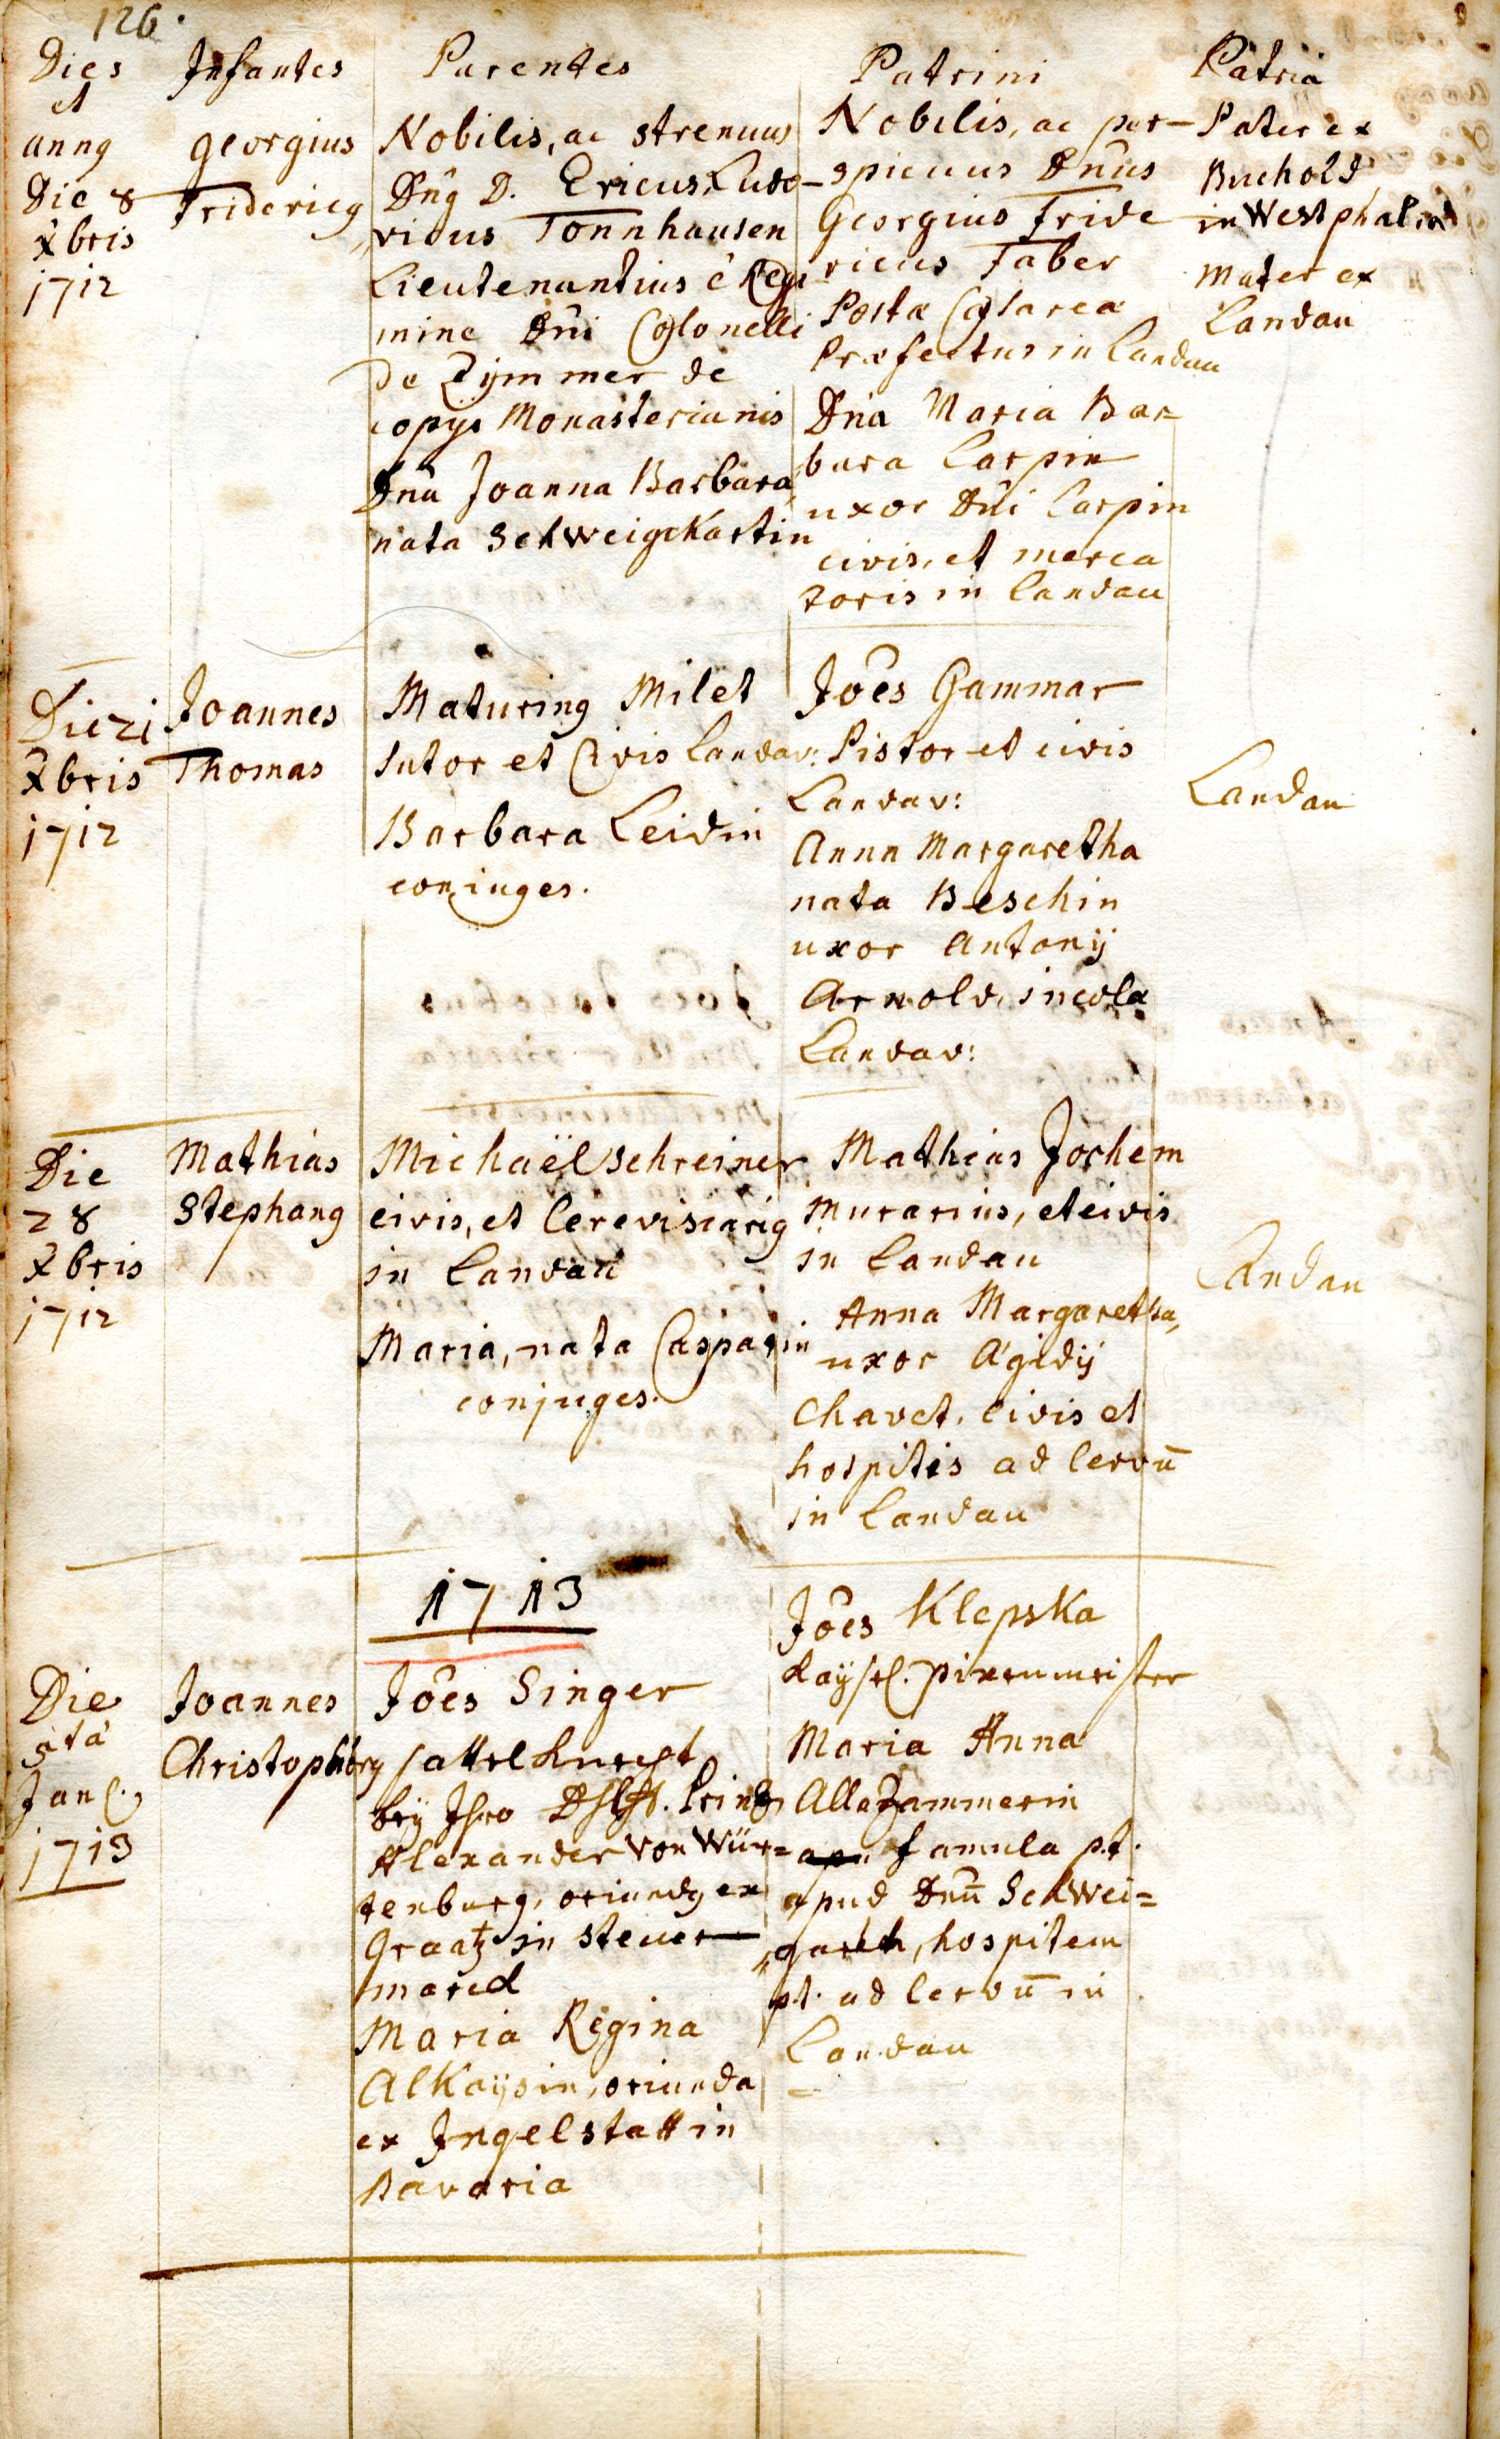 126.
Dies
et
annꝰ
Infantes
Parentes
Patrini
Patria
Die 8
Xbris
1712
Georgius
Fridericꝰ
Nobilis, ac strenuus
Dn̄ꝰ D. Ericus, Ludo-
vicus Tonnhausen
Lieutenantius è Regi
mine Dn̄i Colonelli
de Zymmer de
copijs Monasterianis
Dn̄a Joanna Barbara,
nata Schweigckartin
Nobilis, ac per-
spicuus Dn̄us
Georgius Fride
ricus Faber
Postæ Cæsareæ
Præfectus in Landau
Dn̄a Maria Bar-
bara Carpin
uxor Dn̄i Carpin
civis, et merca
toris in Landau
Pater ex
Buchold
in Westphalia
Mater ex
Landau
Die 21
Xbris
1712
Joannes
Thomas
Maturinꝰ Milet
sutor et Civis Landav:
Barbara Leidin
conjuges.
Jōes Gammar
Pistor et civis
Landav:
Anna Margaretha
nata Beschin
uxor Antonij
Arnold, incolæ
Landav:
Landau
Die
28
Xbris
1712
Mathias
Stephanꝰ
Michaël Schreiner
civis, et Cerevisiariꝰ
in Landau
Maria, nata Casparin
conjuges.
Mathias Jochem
Murarius, et civis
in Landau
Anna Margaretha,
uxor Ægidij
Chavet, civis et
hospitis ad Cervū
in Landau
Landau
1713
Die
5ta
Jan[.]
1713
Joannes
Christophorꝰ
Jōes Singer
sattelknecht
bey Ihro Dhlcht. Printz
Alexander von Wür=
tenburg, oriundꝰ ex
Graatz in Steuer-
marck
Maria Regina
Alkaysin, oriunda
ex Ingelstatt in
Bavaria
Jōes Klepska
Kaysrl. pixenmeister
Maria Anna
Allezammerin
famula p.t.
apud Dnū Schwei=
garth, hospitem
pt. ad Cervū in
Landau